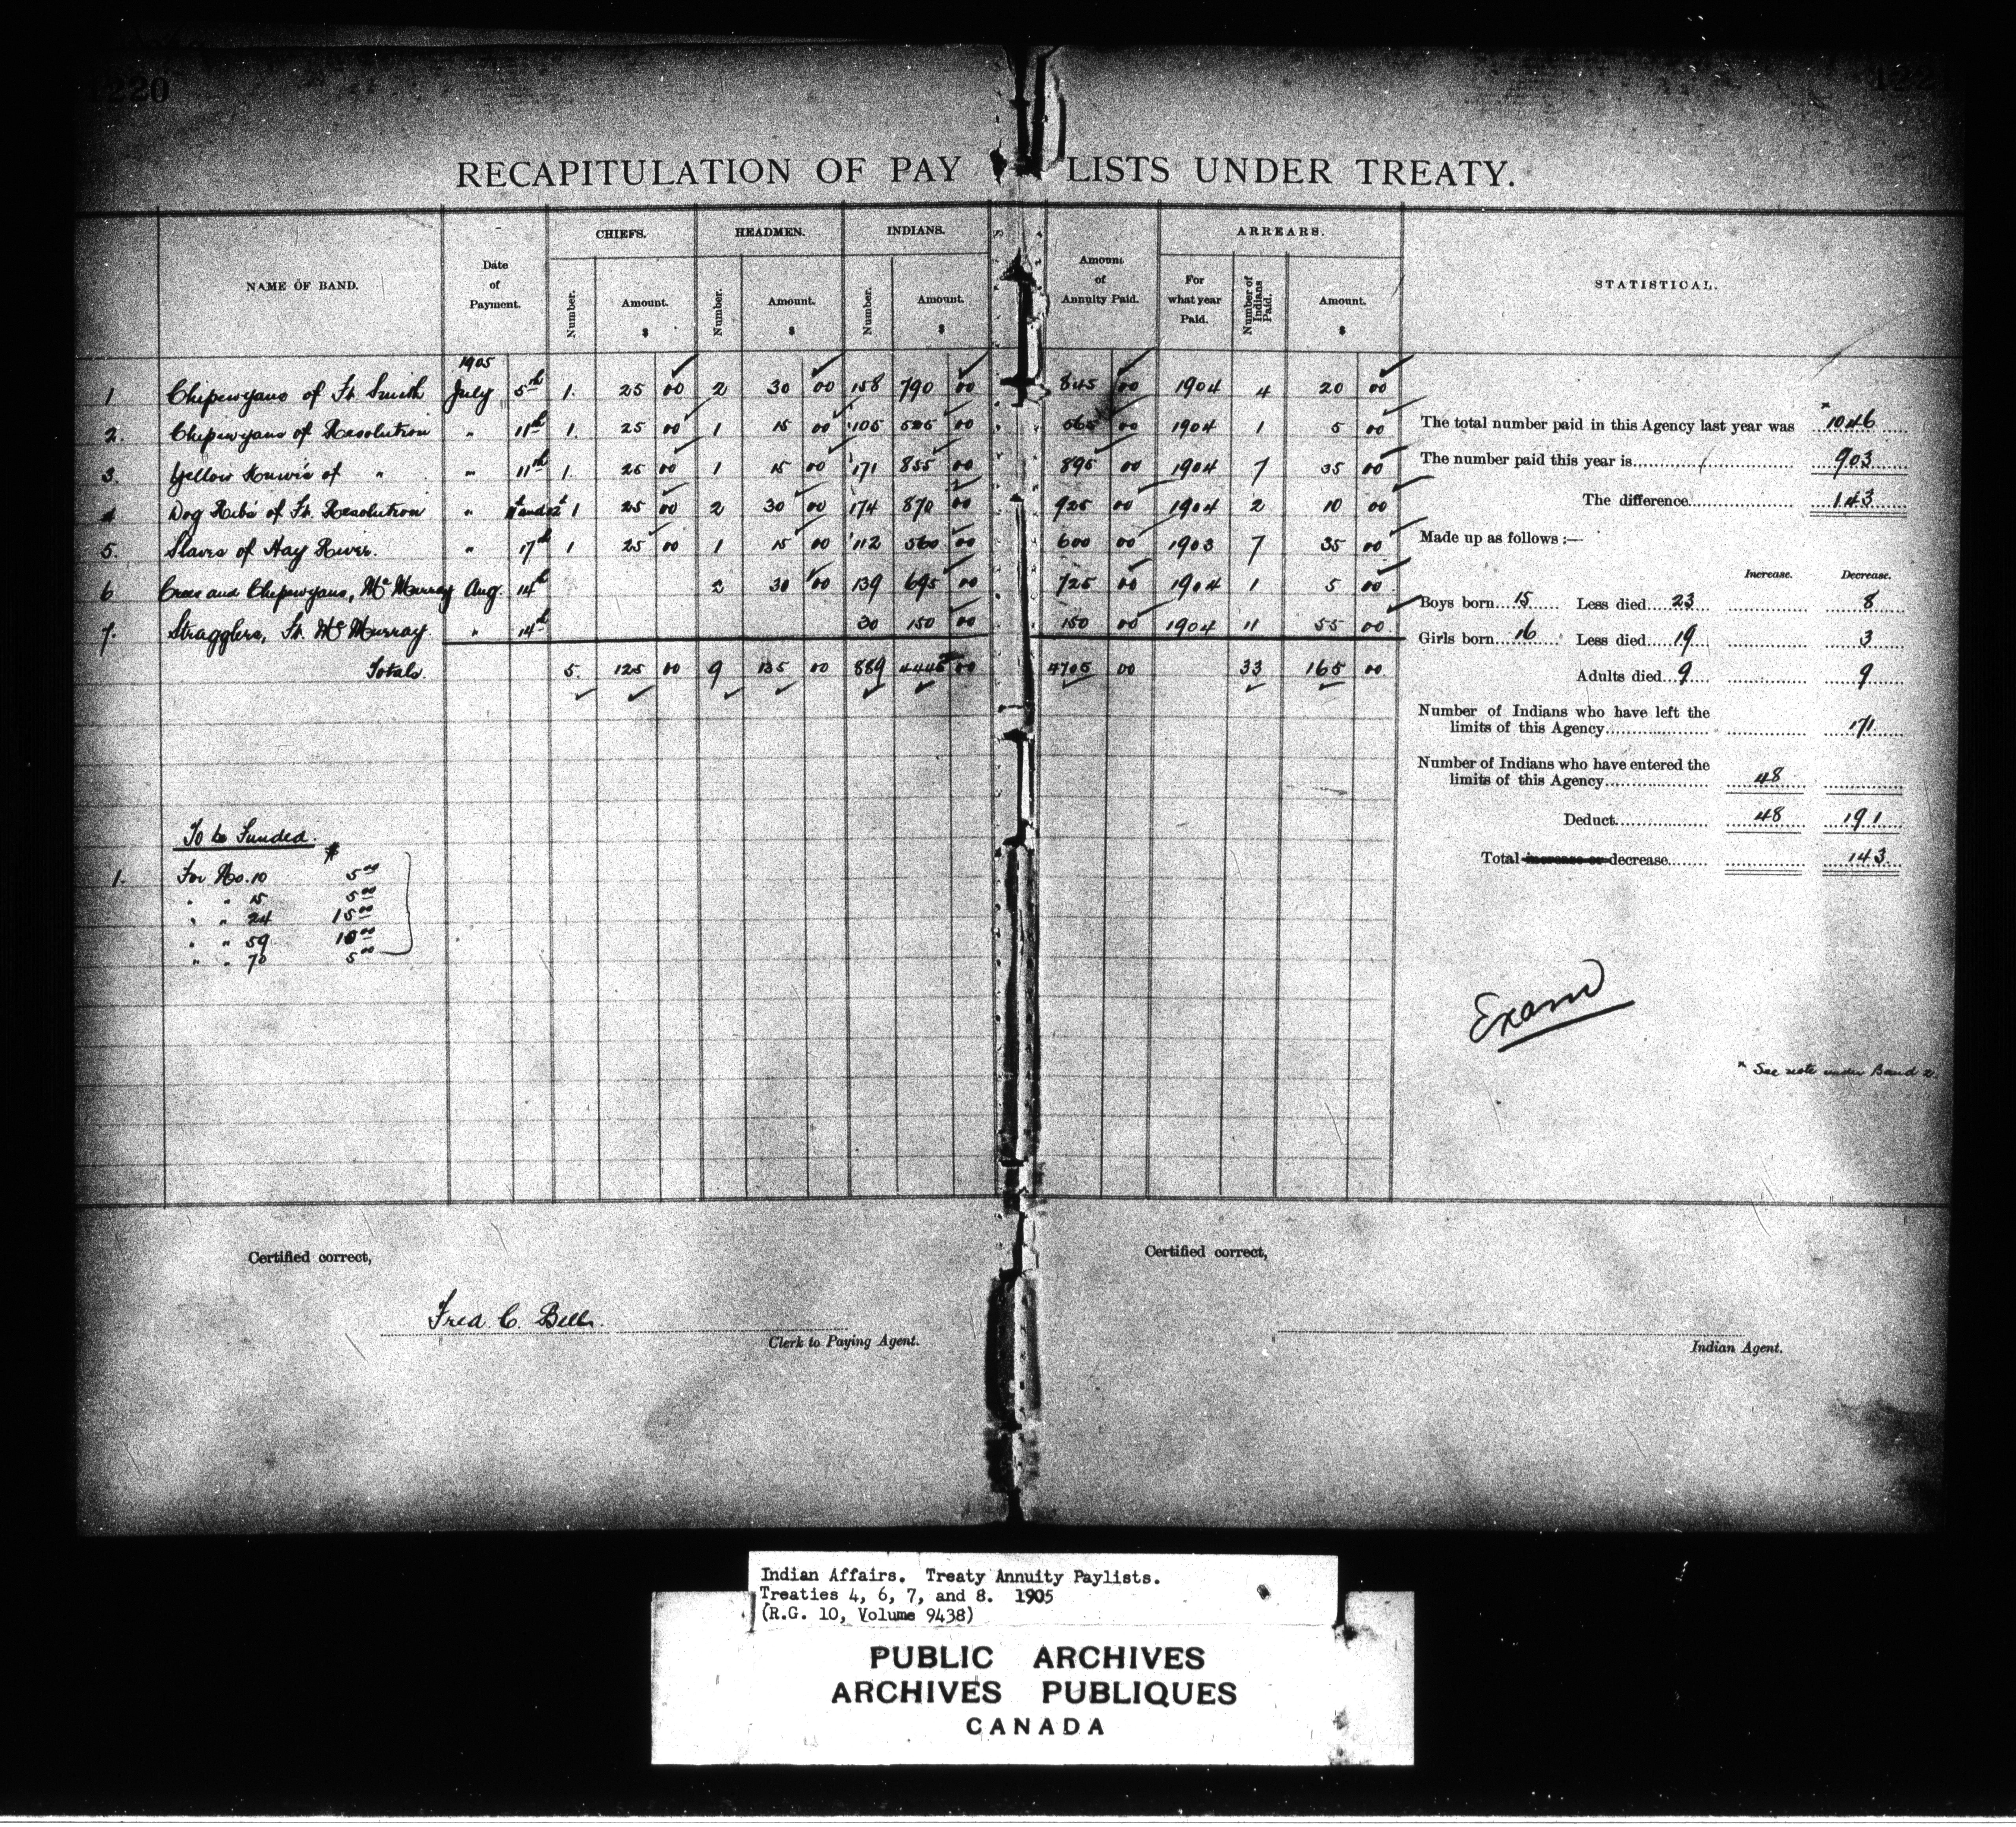 1220
RECAPITULATION OF PAY LISTS UNDER TREATY.
NAME OF BAND. Date of Payment. CHIEFS. Number. Amount. $ HEADMEN. Number. Amount. $ INDIANS. Number. Amount. $ Amount of Annuity Paid. ARREARS. For what year Paid. Number of Indians Paid. Amount. $ STATISTICAL.
1905
1 Chipewyans of Ft. Smith July 5th 1. 25 00 2 30 00 158 790 00 845 00 1904 4 20 00
2. Chipewyans of Resolution " 11th 1. 25 00 1 15 00 105 525 00 565 00 1904 1 5 00
3. Yellow Knives of " " 11th 1. 25 00 1 15 00 171 855 00 895 00 1904 7 35 00
4 Dog Ribs of Ft. Resolution " 1 25 00 2 30 00 174 870 00 925 00 1904 2 10 00
5. Slaves of Hay River. " 17th 1 25 00 1 15 00 112 560 00 600 00 1903 7 35 00
6 Crees and Chipewyans, Mc Murray Aug. 14th 2 30 00 139 695 00 725 00 1904 1 5 00
7. Stragglers, Ft. Mc Murray. " 14th 30 150 00 150 00 1904 11 55 00
Totals. 5. 125 00 9 135 00 889 4445 00 4705 00 33 165 00
The total number paid in this Agency last year was x 1046
The number paid this year is 903
The difference 143
Made up as follows :—
Increase. Decrease.
Boys born 15 Less died 23 8
Girls born 16 Less died 19 3
Adults died 9 9
Number of Indians who have left the
limits of this Agency 171
Number of Indians who have entered the
limits of this Agency 48
Deduct 48 191
Total increase or decrease 143
To be Funded.
$
1. For No. 10 5 00
" " 15 5 00
" " 24 15 00
" " 59 10 00
" " 70 5 00
Examd
x See note under Band 2.
Certified correct,
Fred. C. Bell.
Clerk to Paying Agent.
Certified correct,
Indian Agent.
Indian Affairs. Treaty Annuity Paylists.
Treaties 4, 6, 7, and 8. 1905
(R.G. 10, Volume 9438)
PUBLIC ARCHIVES
ARCHIVES PUBLIQUES
CANADA